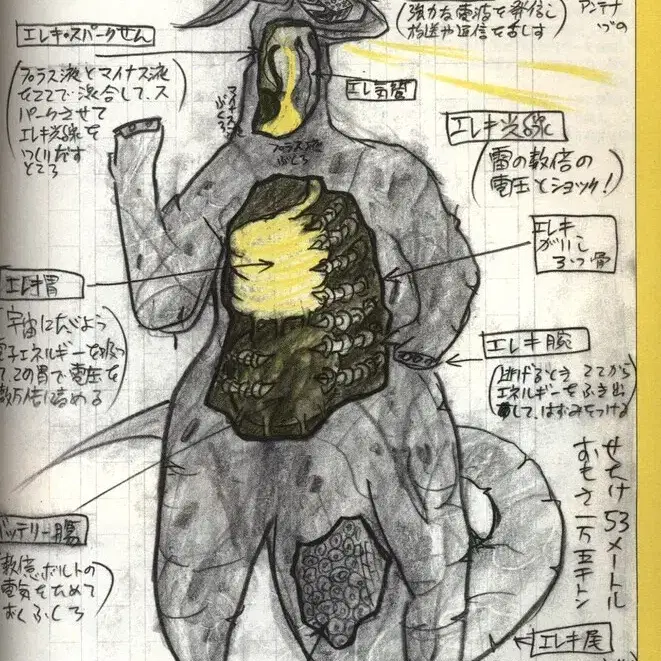 エレキ・スパークせん
プラス液とマイナス液
をここで混合して、ス
パークさせて
エレキ光線を
つくりだす
ところ
強力な電波を発信し
アンテナ
づの
放送や返信をおしす
エレ気管
マイナス液ぶくろ
プラス液
ぶくろ
エレキ光線
雷の数倍の
電圧とショック!
エレキ
がいこ
つ骨
エレキ胃
宇宙にただよう
電子エネルギーを吸っ
て、この胃で電圧を
数万倍に高める
エレキ腕
逃げるとき ここから
エネルギーをふき出
して、はずみをつける
せたけ 53メートル
おもさ 一万五千トン
バッテリー腸
数億ボルトの
電気をためて
おくふくろ
エレキ尾